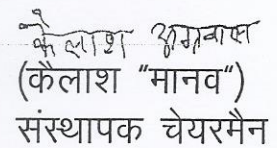 कैलाश अग्रवाल
(कैलाश "मानव")
संस्थापक चेयरमैन